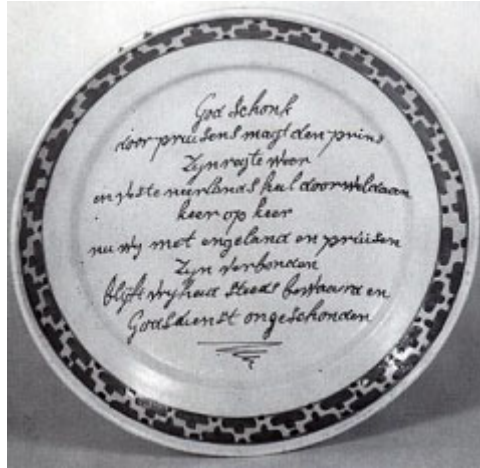 God schonk
door pruisens magt den prins
Zyn regte weer
en veste neerlands heil door weldaan
keer op keer
nu wy met engeland en pruisen
Zyn verbonden
blijft vryheid steeds bewaard en
Godsdienst ongeschonden